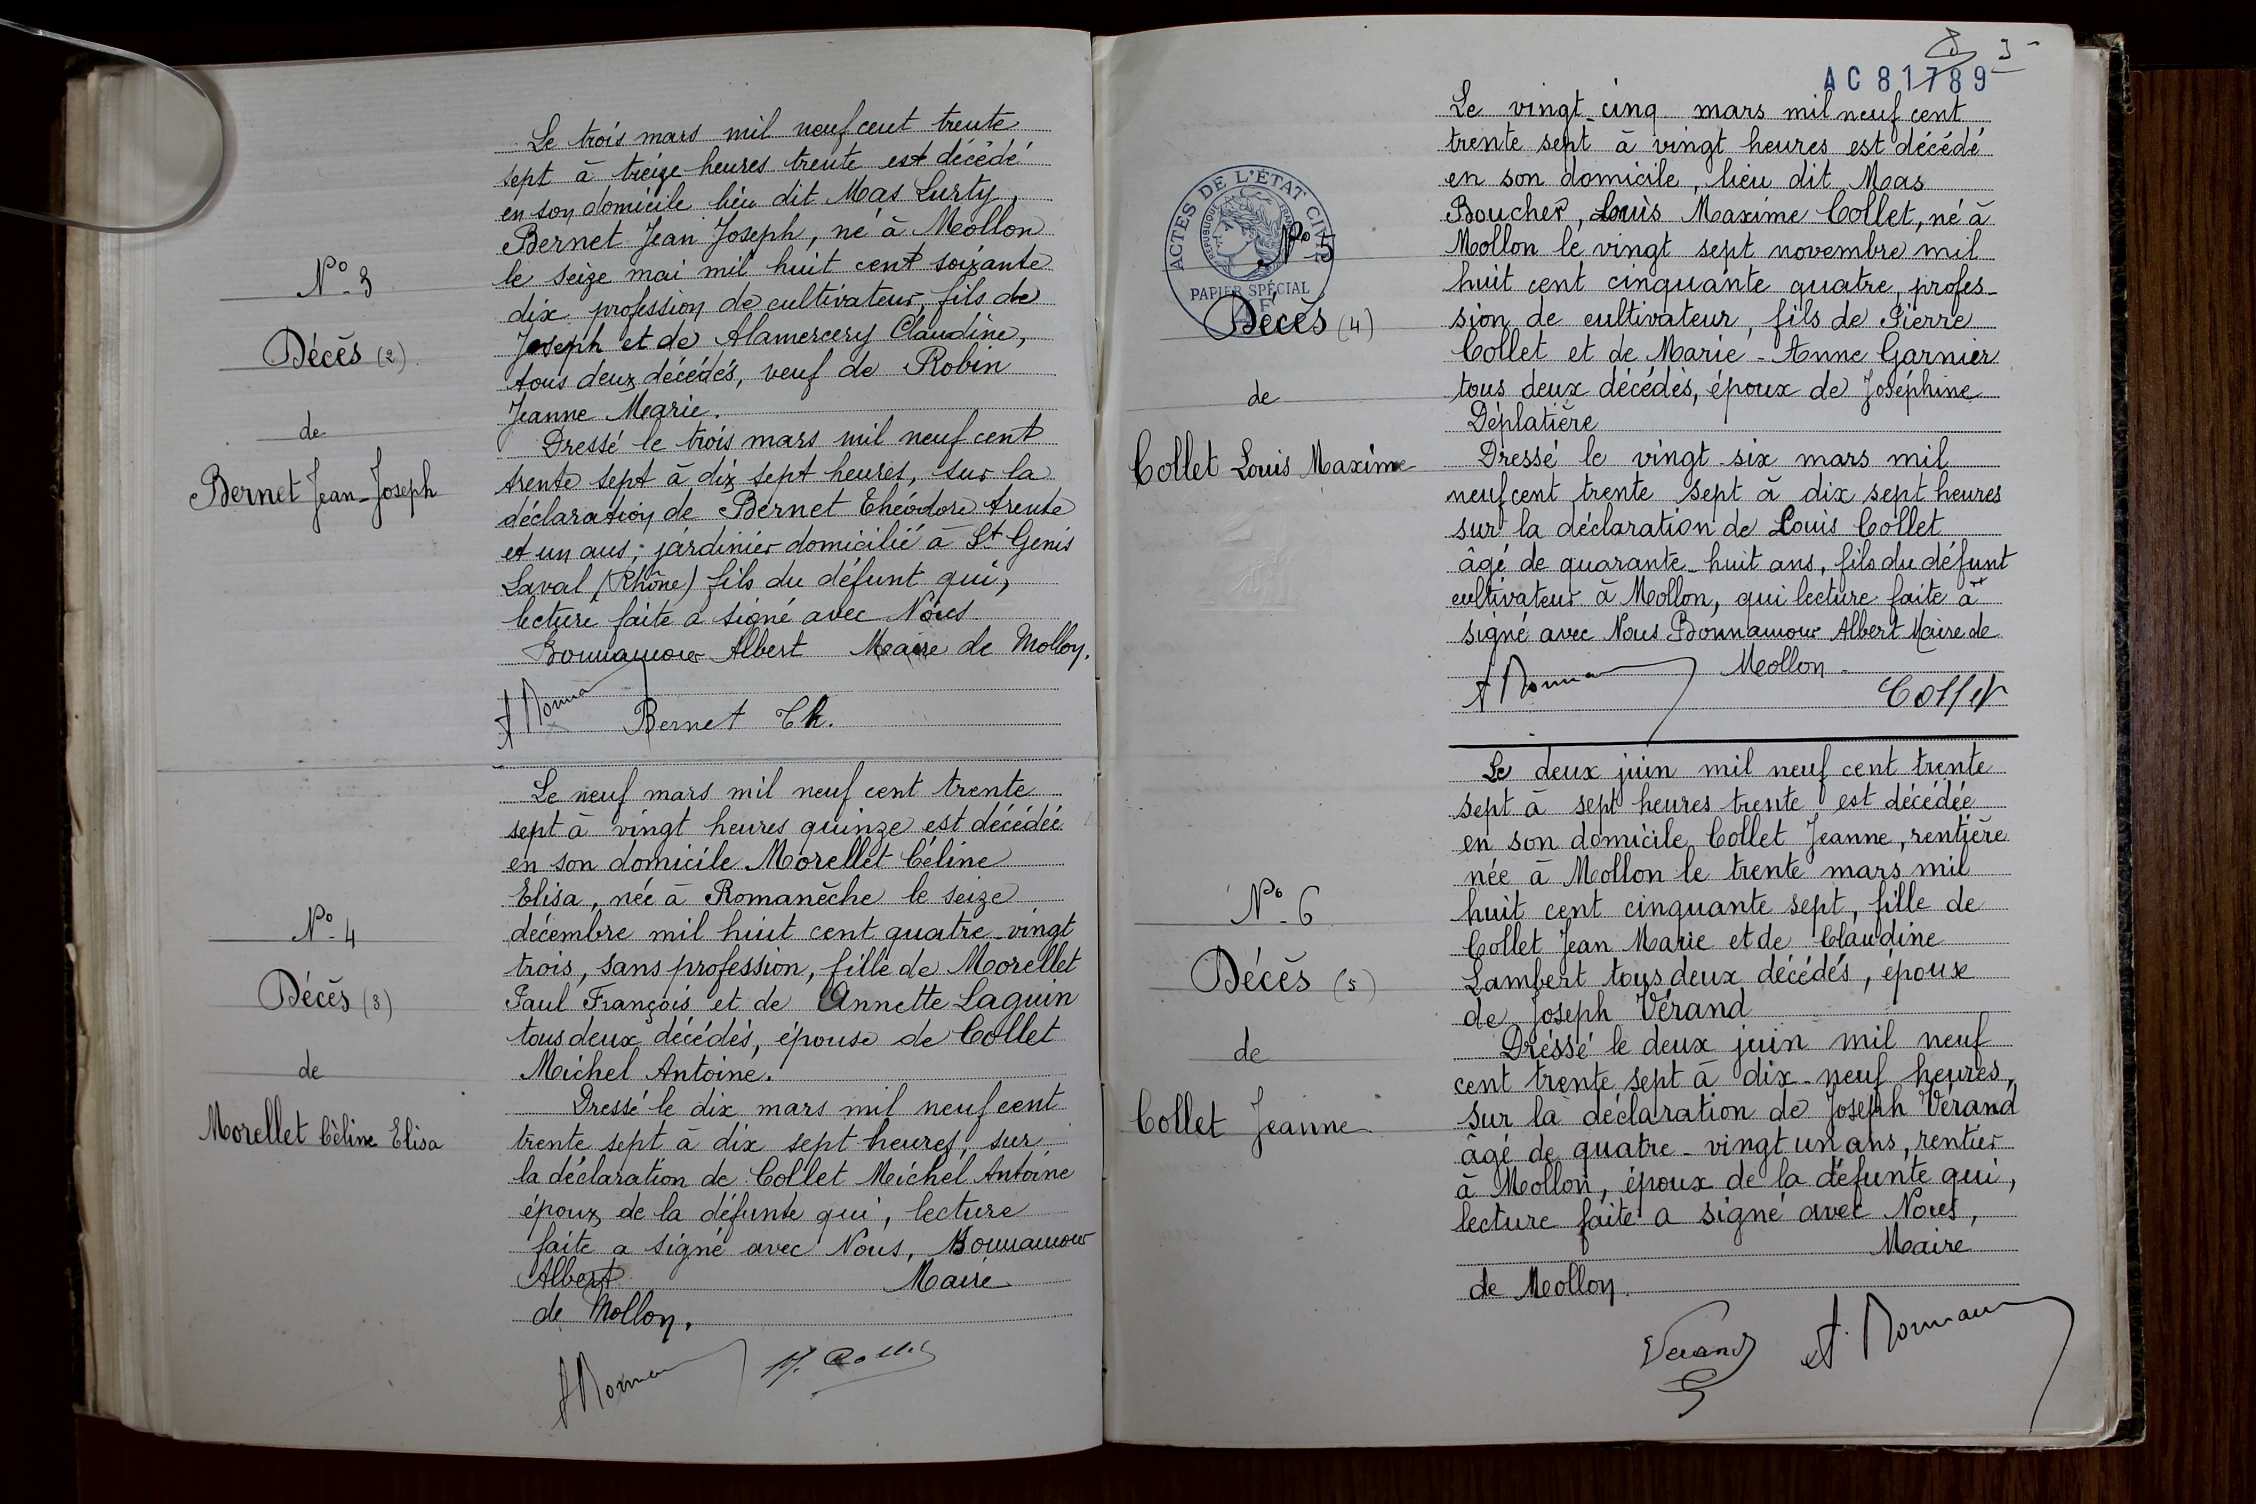 N° 3
Décès (2)
de
Bernet Jean-Joseph
Le trois mars mil neuf cent trente
sept à treize heures trente est décédé
en son domicile lieu dit Mas Lurty,
Bernet Jean Joseph, né à Mollon
le seize mai mil huit cent soixante
dix profession de cultivateur, fils de
Joseph et de Alamercery Claudine,
tous deux décédés, veuf de Robin
Jeanne Marie.
Dressé le trois mars mil neuf cent
trente sept à dix sept heures, sur la
déclaration de Bernet Théodore trente
et un ans, jardinier domicilié à St Genis
Laval (Rhône) fils du défunt qui,
lecture faite a signé avec Nous
Bonnamour Albert Maire de Mollon.
Bernet Th.
N° 4
Décès (3)
de
Morellet Céline Elisa
Le neuf mars mil neuf cent trente
sept à vingt heures quinze est décédée
en son domicile Morellet Céline
Elisa, née à Romanèche le seize
décembre mil huit cent quatre-vingt
trois, sans profession, fille de Morellet
Paul François et de Annette Laguin
tous deux décédés, épouse de Collet
Michel Antoine.
Dressé le dix mars mil neuf cent
trente sept à dix sept heures, sur
la déclaration de Collet Michel Antoine
époux de la défunte qui, lecture
faite a signé avec Nous, Bonnamour
Albert Maire
de Mollon.
3
AC 81789
ACTES DE L'ÉTAT CIVIL
RÉPUBLIQUE FRANÇAISE
PAPIER SPÉCIAL
N° 5
Décès (4)
de
Collet Louis Maxime
Le vingt-cinq mars mil neuf cent
trente sept à vingt heures est décédé
en son domicile, lieu dit Mas
Boucher, Louis Maxime Collet, né à
Mollon le vingt sept novembre mil
huit cent cinquante quatre, profes-
sion de cultivateur, fils de Pierre
Collet et de Marie-Anne Garnier
tous deux décédés, époux de Joséphine
Déplatière
Dressé le vingt-six mars mil
neuf cent trente sept à dix sept heures
sur la déclaration de Louis Collet
âgé de quarante-huit ans, fils du défunt
cultivateur à Mollon, qui lecture faite à
signé avec Nous Bonnamour Albert Maire de
Mollon-
Collet
N° 6
Décès (5)
de
Collet Jeanne
Le deux juin mil neuf cent trente
sept à sept heures trente est décédée
en son domicile, Collet Jeanne, rentière
née à Mollon le trente mars mil
huit cent cinquante sept, fille de
Collet Jean Marie et de Claudine
Lambert tous deux décédés, épouse
de Joseph Vérand
Dréssé le deux juin mil neuf
cent trente sept à dix-neuf heures,
sur la déclaration de Joseph Vérand
âgé de quatre-vingt un ans, rentier
à Mollon, époux de la défunte qui,
lecture faite a signé avec Nous,
Maire
de Mollon.
Verand